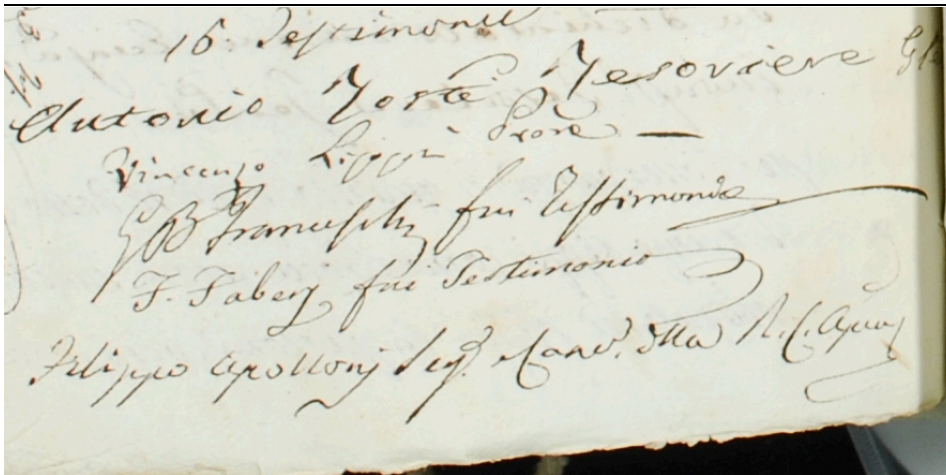 16. Testimonii
Antonio Torti Tesoriere
Vincenzo Lippi Prore
G B Franceschi fui Testimonio
F. Faberj fui Testimonio
Filippo Apollonj Seg. Canc. della R. C. Apca